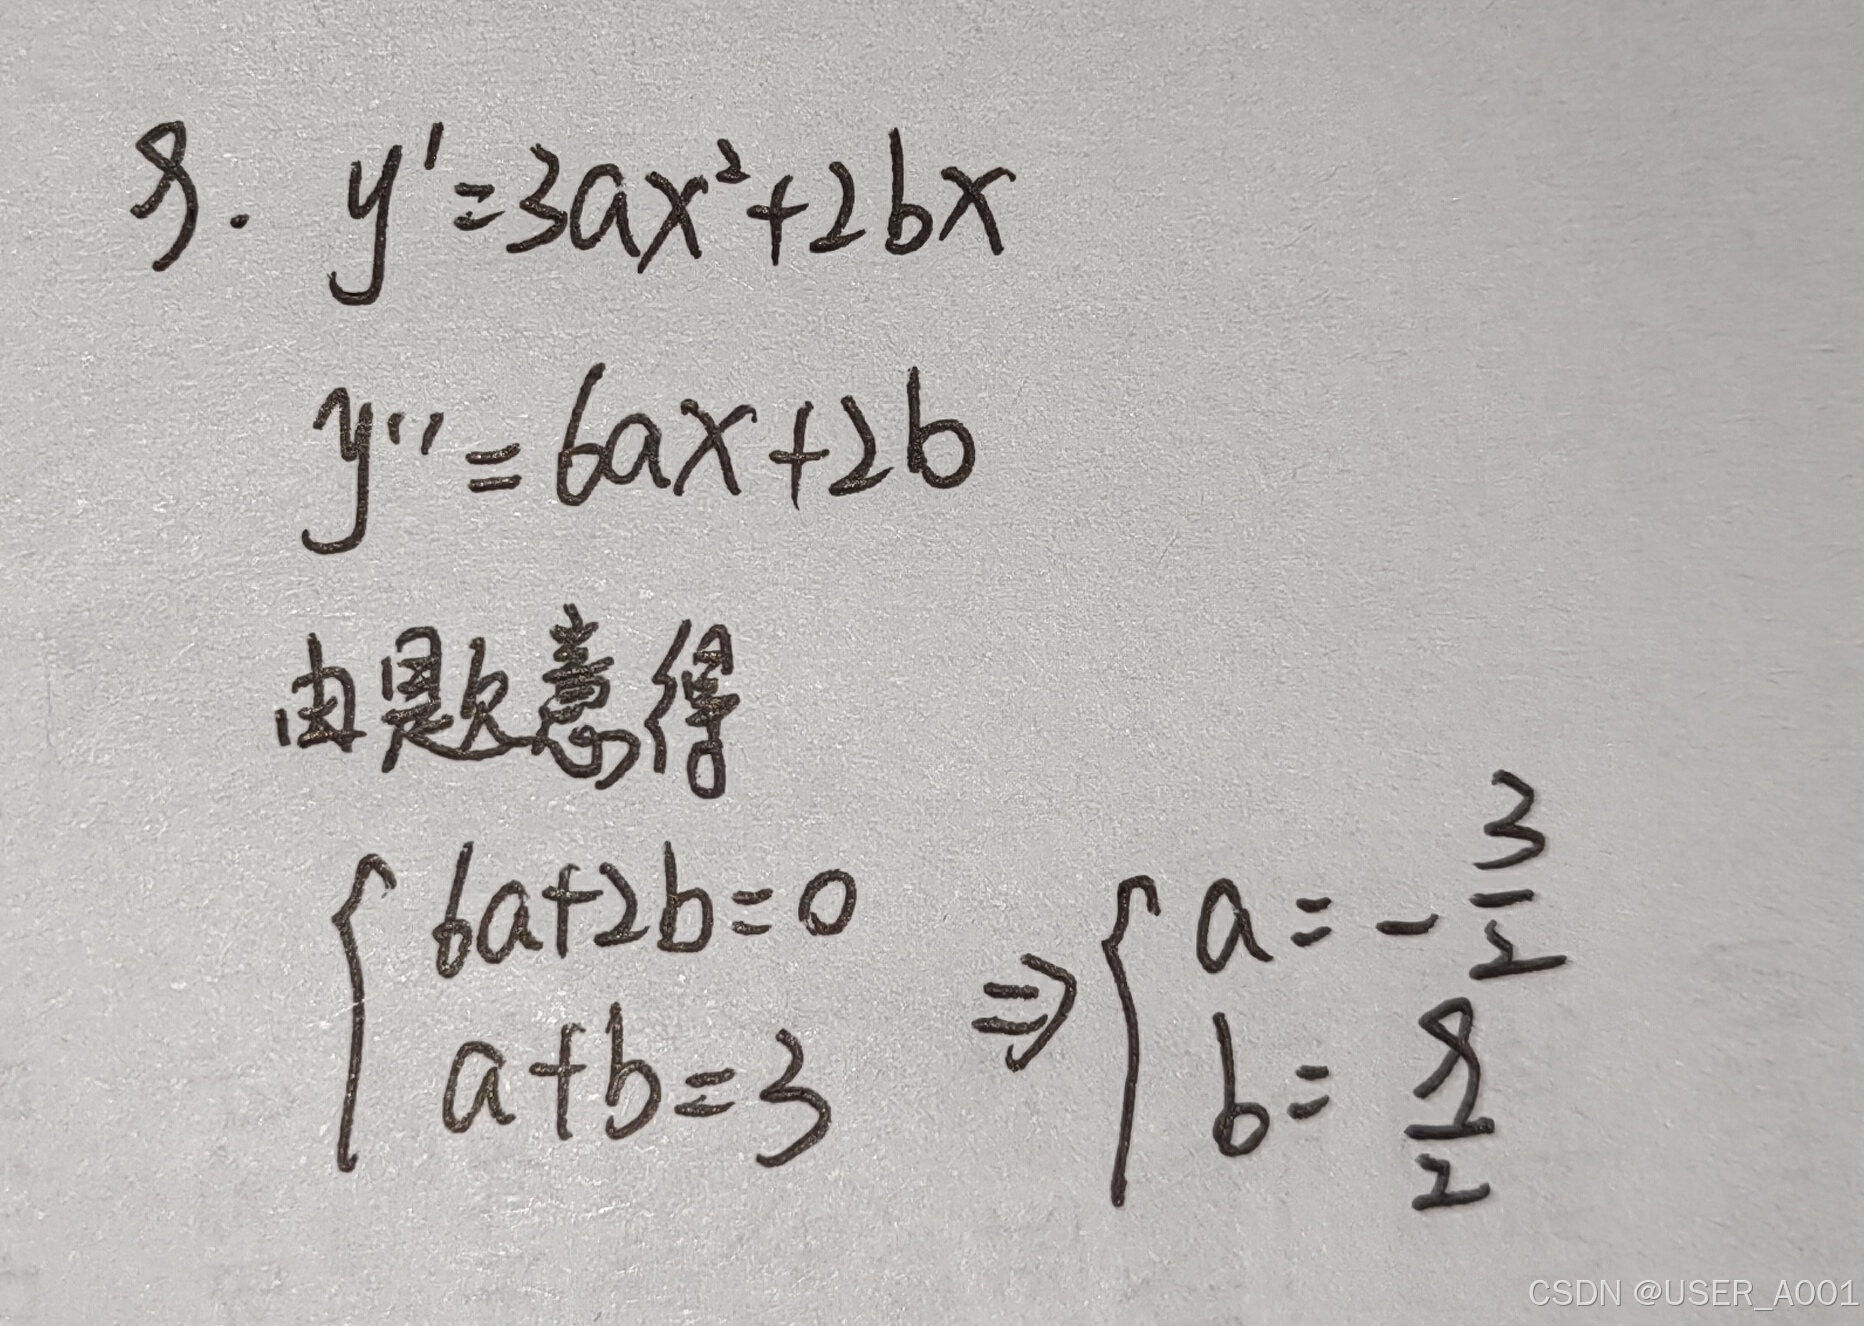 9. y'=3ax²+2bx
y''=6ax+2b
由题意得
{6a+2b=0
a+b=3
⇒ {a=-3/2
b=9/2
CSDN @USER_A001